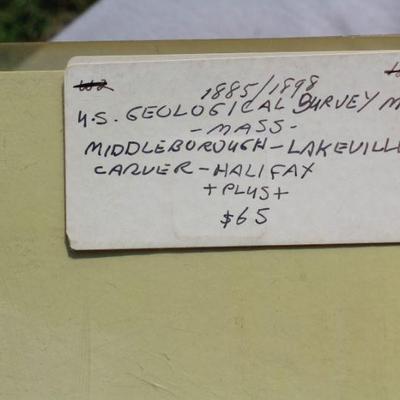 1885/1898
U.S. GEOLOGICAL SURVEY M
- MASS -
MIDDLEBOROUGH - LAKEVILLE
CARVER - HALIFAX
+ PLUS +
$65